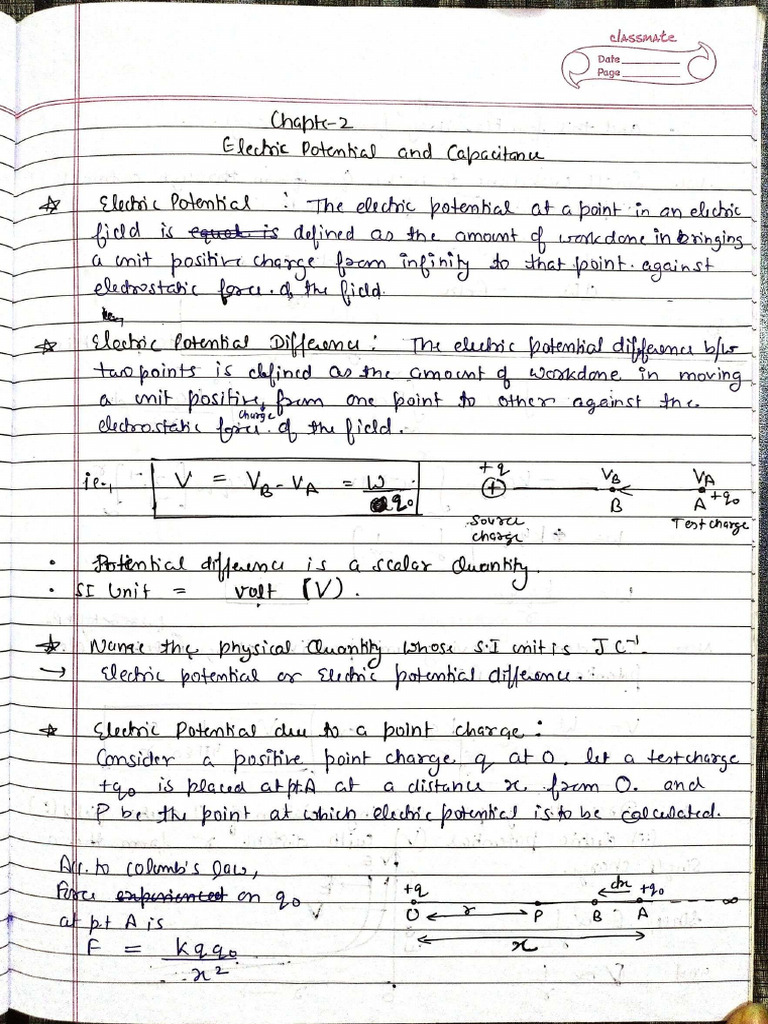 classmate
Date
Page
Chapte-2
Electric Potential and Capacitance
☆ Electric Potential : The electric potential at a point in an electric
field is equal is defined as the amount of workdone in bringing
a unit positive charge from infinity to that point. against
electrostatic force. of the field.
☆ Electric Potential Difference: The electric potential difference b/w
two points is defined as the amount of workdone in moving
a unit positive charge from one point to other against the
electrostatic force. of the field.
ie., V = VB - VA = W/q₀
+q VB VA
⊕ B A +q₀
Source charge Test charge
• Potential difference is a scalar Quantity.
• SI Unit = volt (V).
☆ Name the physical Quantity whose S.I unit is JC⁻¹.
→ Electric potential or Electric potential difference.
☆ Electric Potential due to a point charge:
Consider a positive point charge q at O. let a testcharge
+q₀ is placed at pt.A at a distance x from O. and
P be the point at which electric potential is to be calculated.
Acc. to columb's law,
Force experienced on q₀
at pt A is
F = kqq₀/x²
+q dx +q₀
O r P B A ∞
x